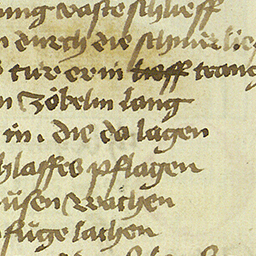 ung vaste schlieff
durch die schnür lie
tür er in tieff trang
n Zöbelin lang
in . die da lagen
hlaffes pflagen
üsen wachen
füge lachen